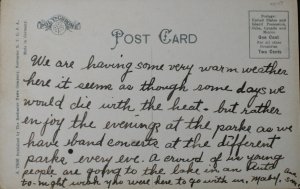 POST CARD
Postage:
United States and
Island Possessions,
Cuba, Canada and
Mexico.
One Cent
For all other
Countries
Two Cents
We are having some very warm weather
here it seems as though some days we
would die with the heat. but rather
enjoy the evenings at the parks as we
have band concerts at the different
parks every eve. a crowd of us young
people are going to the lake in an
to-night wish you were here to go with us, Mabel.